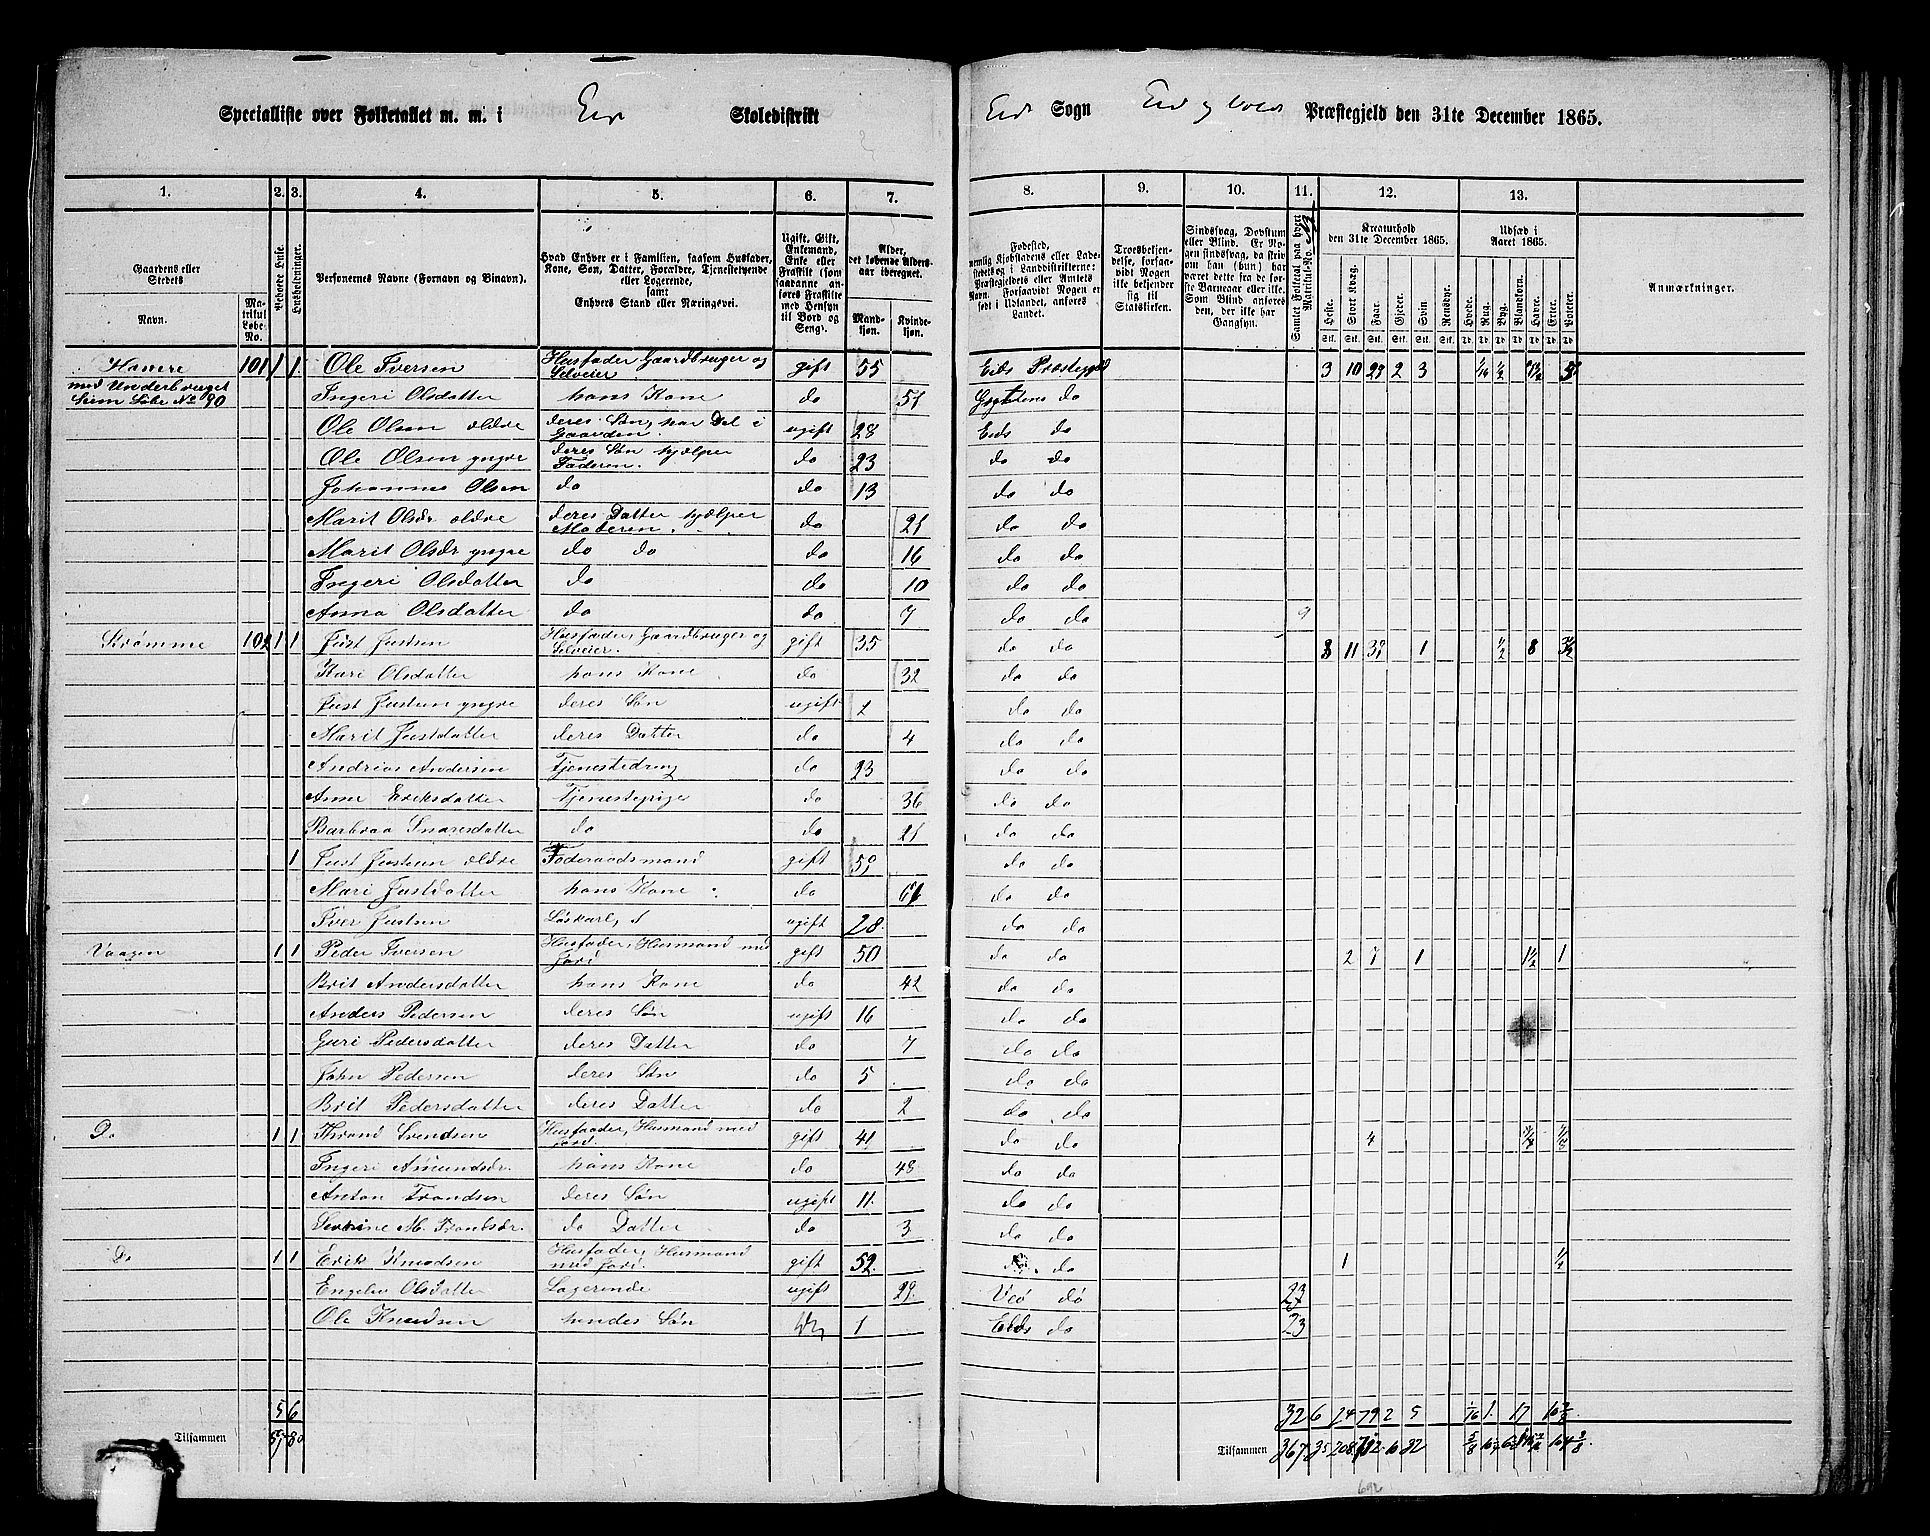 Specialliste over Folketallet m. m. i Eid Skoledistrikt Eid Sogn Eid og Præstegjeld den 31te December 1865.
1. 2. 3. 4. 5. 6. 7. 8. 9. 10. 11. 12. 13.
Gaardens eller Stedets Navn.
Matrikul Løbe-No.
Beboede Huse.
Husholdninger.
Personernes Navne (Fornavn og Binavn).
Hvad Enhver er i Familien, saasom Husfader, Kone, Søn, Datter, Forældre, Tjenestetyende eller Logerende, samt Enhvers Stand eller Næringsvei.
Ugift, Gift, Enkemand, Enke eller Fraskilt (som saadanne anføres Fraskilte med Hensyn til Bord og Seng).
Alder, det løbende Aldersaar iberegnet.
Mandkjøn. Kvindekjøn.
Fødested, nemlig Kjøbstadens eller Ladestedets og i Landdistrikterne: Præstegjeldets eller Amtets Navn. Forsaavidt Nogen er født i Udlandet, anføres Landet.
Troesbekjendelse, forsaavidt Nogen ikke bekjender sig til Statskirken.
Sindssvag, Døvstum eller Blind. Er Nogen sindssvag, da skriv om han (hun) har været dette fra de første Barneaar eller ikke. Som Blind anføres den, der ikke har Gangsyn.
Samlet Folketal paa hvert Matrikul-No.
Kreaturhold den 31te December 1865.
Heste. Stort Kvæg. Faar. Gjeder. Svin. Rensdyr.
Udsæd i Aaret 1865.
Hvede. Rug. Byg. Blandkorn. Havre. Erter. Poteter.
Anmærkninger.
101 1 1 Ole Iversen Husfader Gaardbruger og Selveier gift 55 Eids Præstegjeld 3 10 29 2 3
med Underbruget Løbe No 90 Ingeri Olsdatter hans Kone do 51 do
Ole Olsen ældre deres Søn, har Del i Gaarden. ugift 28 Eids do
Ole Olsen yngre deres Søn hjælper Faderen. do 23 do do
Johannes Olsen do do 13 do do
Marit Olsdr ældre deres Datter hjælper Moderen. do 21 do do
Marit Olsdr yngre do do do 16 do do
Ingeri Olsdatter do do 10 do do
Anna Olsdatter do do 7 do do 9
Strømme 102 1 1 Just Justsen Husfader, Gaardbruger og Selveier. gift 35 do do 3 11 39 1 1/2 8 3 1/2
Kari Olsdatter hans Kone do 32 do do
Just Justsen yngre deres Søn ugift do do
Marit Justdatter deres Datter do 4 do do
Andrias Andersen Tjenestedreng do 23 do do
Anne Eriksdatter Tjenestepige do 36 do do
Barbraa Snaresdatter do do 21 do do
1 Just Justsen ældre Føderaadsmand gift 59 do do
Mari Justdatter hans Kone do 61 do do
Iver Justsen Løskarl, ugift 28 do do
Vaagen 1 1 Peder Iversen Husfader, Husmand med Jord gift 50 do do 2 7 1 1 1/2 1
Brit Andersdatter hans Kone do 42 do do
Anders Pedersen deres Søn ugift 16 do do
Guri Pedersdatter deres Datter do 7 do do
John Pedersen deres Søn do 5 do do
Brit Pedersdatter deres Datter do 2 do do
Do 1 1 Thrond Svendsen Husfader, Husmand med Jord. gift 41 do do 4
Ingeri Amundsdr. hans Kone do 48 do do
Anton Trondsen deres Søn ugift 11. do do
M. Trondsdr. do Datter do 3 do do
Do 1 1 Erik Knudsen Husfader, Husmand med Jord. gift 52. do 1 1/2
Engeb Olsdatter Logerende ugift 29. Veø do 23
Ole Knudsen hendes Søn 1 Eids do 23
5 6 32 6 24 79 2 5 1/16 1. 17
Tilsammen 57 80 Tilsammen 367 35 208